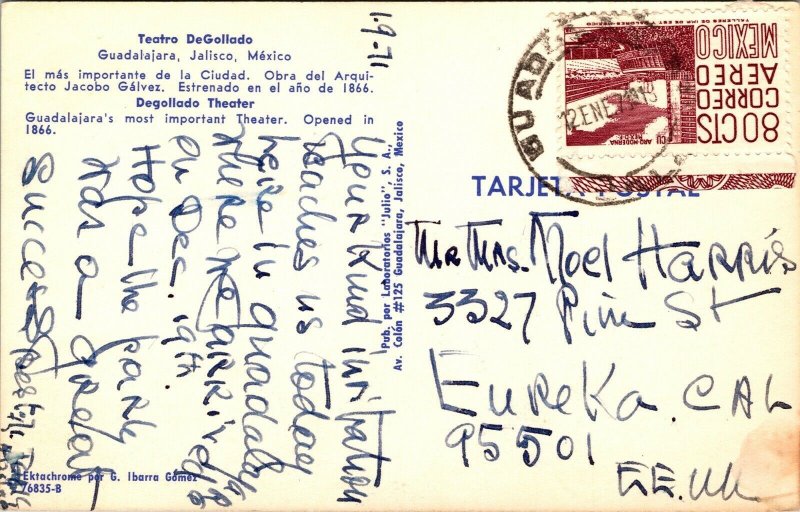 Teatro DeGollado
Guadalajara, Jalisco, México
El más importante de la Ciudad. Obra del Arqui-
tecto Jacobo Gálvez. Estrenado en el año de 1866.
Degollado Theater
Guadalajara's most important Theater. Opened in
1866.
1-9-71
Your kind invitation
reaches us today
here in guadalajara
where we arrived
on Dec. 19th.
Hope the party
was a great
success
Pub. por Laboratorios "Julio", S. A.,
Av. Colón #125 Guadalajara, Jalisco, Mexico
Ektachrome por G. Ibarra Gómez
76835-B
TARJETA POSTAL
Mr Mrs. Noel Harris
3327 Pine St
Eureka. CAL
95501
EE.UU
MEXICO
AEREO
CORREO
80 CTS
ARQ. MODERNA
MEX D.F.
CU
12 ENE 71